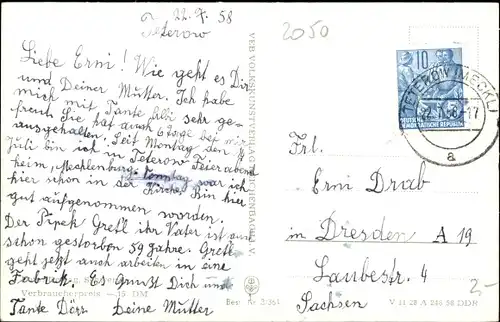 22.7.58
Teterow
2050
Liebe Erni! Wie geht es Dir
und Deiner Mutter. Ich habe
mich mit Tante
freut. Sie hat auch 6 Tage bei mir
ausgehalten. Seit Montag den
Juli bin ich in Teterow Feierabend
heim, Mecklenburg. Sonntag war ich
hier schon in der Kirche. Bin hier
gut aufgenommen worden.
Der Pipek Gretl ihr Vater ist auch
schon gestorben 59 Jahre. Gretl
geht jetzt auch arbeiten in eine
Fabrik. Es grüßt Dich und
Verbraucherpreis — 15 DM
Tante Deine Mutter
Best. Nr. 2/361
VEB VOLKSKUNSTVERLAG REICHENBACH I. V.
10
DEUTSCHE
DEMOKRATISCHE REPUBLIK
TETEROW (MECKL)
22.7.58-17
a
Frl.
Erni Drab
in Dresden A 19
Laubestr. 4
Sachsen
2-
V 11 28 A 246 58 DDR